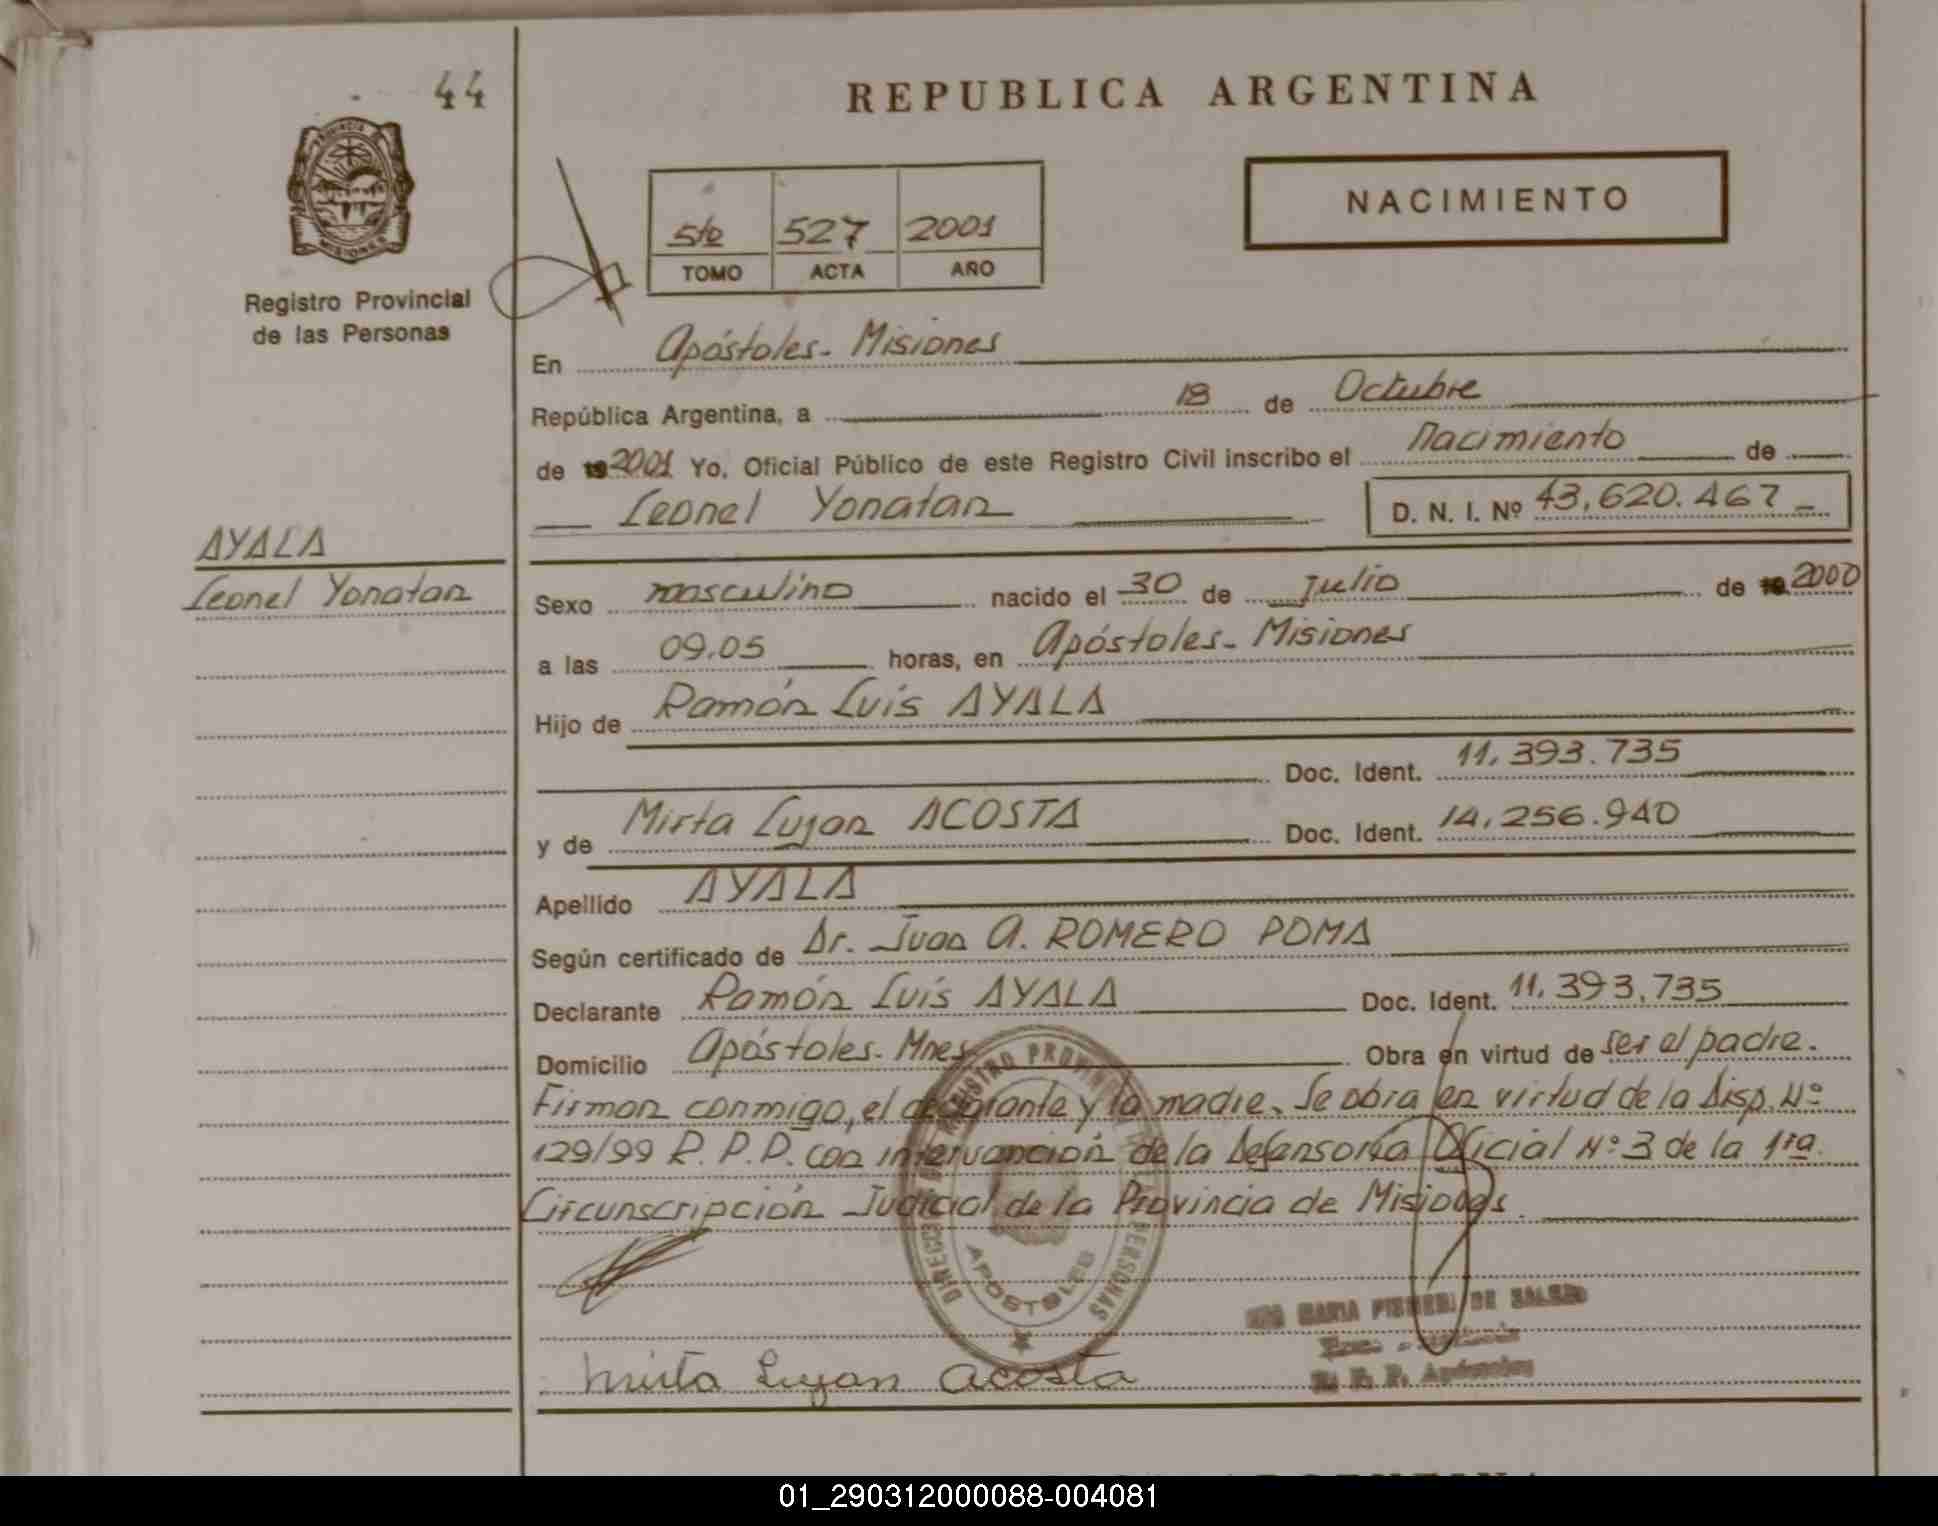 44
REPUBLICA ARGENTINA
PROVINCIA DE
MISIONES
Registro Provincial
de las Personas
5to 527 2001
TOMO ACTA AÑO
NACIMIENTO
En Apóstoles - Misiones
República Argentina, a 18 de Octubre
de 19 2001 Yo, Oficial Público de este Registro Civil inscribo el Nacimiento de
Leonel Yonatan D. N. I. Nº 43,620.467
AYALA
Leonel Yonatan
Sexo masculino nacido el 30 de Julio de 19 2000
a las 09.05 horas, en Apóstoles - Misiones
Hijo de Ramón Luis AYALA
Doc. Ident. 11.393.735
y de Mirta Lujan ACOSTA Doc. Ident. 14.256.940
Apellido AYALA
Según certificado de Dr. Juan A. ROMERO POMA
Declarante Ramón Luis AYALA Doc. Ident. 11.393.735
Domicilio Apóstoles - Mnes. Obra en virtud de ser el padre.
Firman conmigo, el declarante y la madre. Se obra en virtud de la Disp. Nº
129/99 R. P. P. con intervención de la Defensoría Oficial Nº 3 de la 1ra.
Circunscripción Judicial de la Provincia de Misiones.
REGISTRO PROVINCIAL DE LAS PERSONAS
APOSTOLES
MARIA DE
Mirta Lujan Acosta
01_290312000088-004081